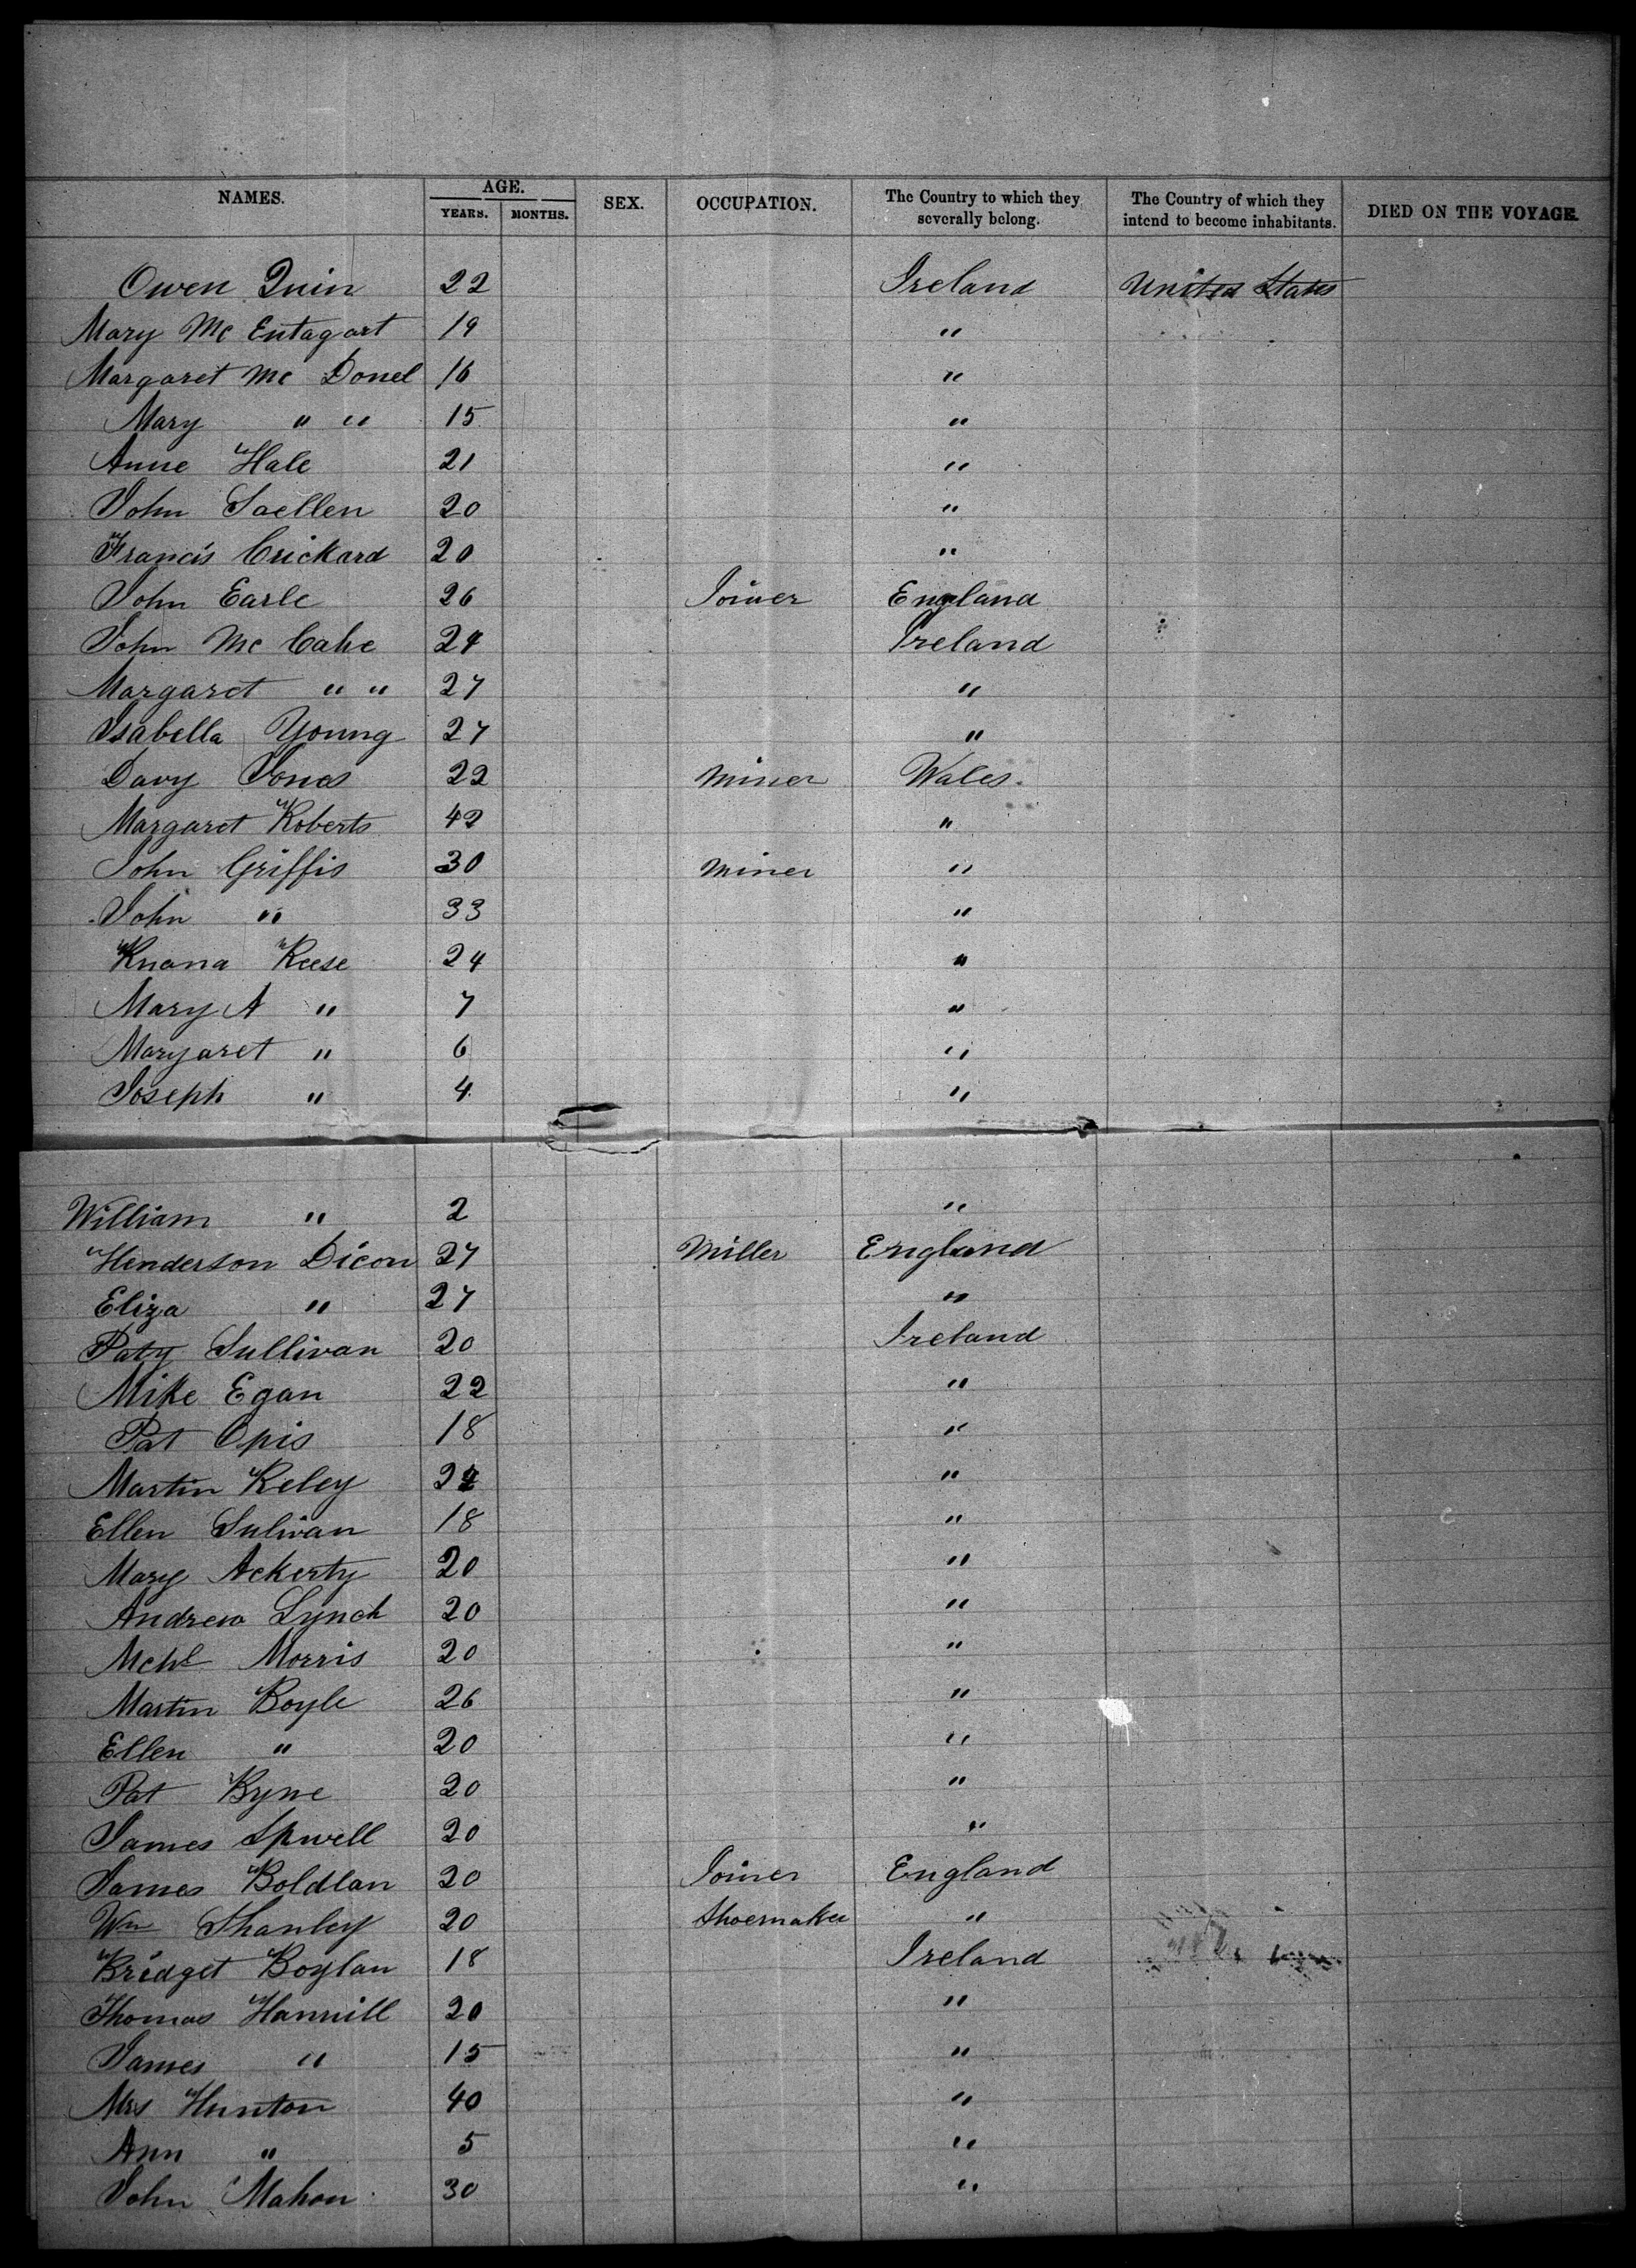 NAMES. AGE. YEARS. MONTHS. SEX. OCCUPATION. The Country to which they severally belong. The Country of which they intend to become inhabitants. DIED ON THE VOYAGE.
Owen Quin 22 Ireland United States
Mary Mc Entagart 19 "
Margaret Mc Donel 16 "
Mary " " 15 "
Anne Hale 21 "
John Saellen 20 "
Francis Crickard 20 "
John Earle 26 Joiner England
John Mc Cahe 24 Ireland
Margaret " " 27 "
Isabella Young 27 "
Davy Jones 22 Miner Wales.
Margaret Roberts 42 "
John Griffis 30 Miner "
John " 33 "
Knana Reese 24 "
Mary A " 7 "
Margaret " 6 "
Joseph " 4 "
William " 2 "
Henderson Dicon 27 Miller England
Eliza " 27 "
Paty Sullivan 20 Ireland
Mike Egan 22 "
Pat Opis 18 "
Martin Keley "
Ellen Sulivan 18 "
Mary Ackerty 20 "
Andrew Lynch 20 "
Mchl Morris 20 "
Martin Boyle 26 "
Ellen " 20 "
Pat Byne 20 "
James Spwell 20 "
James Boldlan 20 Joiner England
Wm Shanley 20 Shoemaker "
Bridget Boylan 18 Ireland
Thomas Hamill 20 "
James " 15 "
Mrs Hunton 40 "
Ann " 5 "
John Mahon 30 "